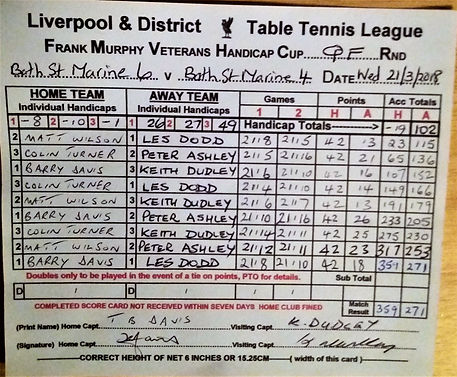 Liverpool & District Table Tennis League
FRANK MURPHY VETERANS HANDICAP CUP QF RND
Bath St Marine 6 v Bath St Marine 4 DATE Wed 21/3/2018
HOME TEAM AWAY TEAM Games Points Acc Totals
Individual Handicaps Individual Handicaps 1 2 H A H A
1 -8 2 -10 3 -1 1 26 2 27 3 49 Handicap Totals -19 102
2 MATT WILSON 1 LES DODD 21 8 21 5 42 13 23 115
3 COLIN TURNER 2 PETER ASHLEY 21 5 21 16 42 21 65 136
1 BARRY DAVIS 3 KEITH DUDLEY 21 6 21 10 42 16 107 152
3 COLIN TURNER 1 LES DODD 21 4 21 10 42 14 149 166
2 MATT WILSON 3 KEITH DUDLEY 21 6 21 7 42 13 191 179
1 BARRY DAVIS 2 PETER ASHLEY 21 10 21 16 42 26 233 205
3 COLIN TURNER 3 KEITH DUDLEY 21 14 21 11 42 25 275 230
2 MATT WILSON 2 PETER ASHLEY 21 12 21 11 42 23 317 253
1 BARRY DAVIS 1 LES DODD 21 8 21 10 42 18 359 271
Doubles only to be played in the event of a tie on points, PTO for details. Sub Total
D / D / / /
COMPLETED SCORE CARD NOT RECEIVED WITHIN SEVEN DAYS HOME CLUB FINED Match Result 359 271
(Print Name) Home Capt. T B DAVIS Visiting Capt. K. DUDLEY
(Signature) Home Capt. Visiting Capt.
CORRECT HEIGHT OF NET 6 INCHES OR 15.25CM (width of this card)